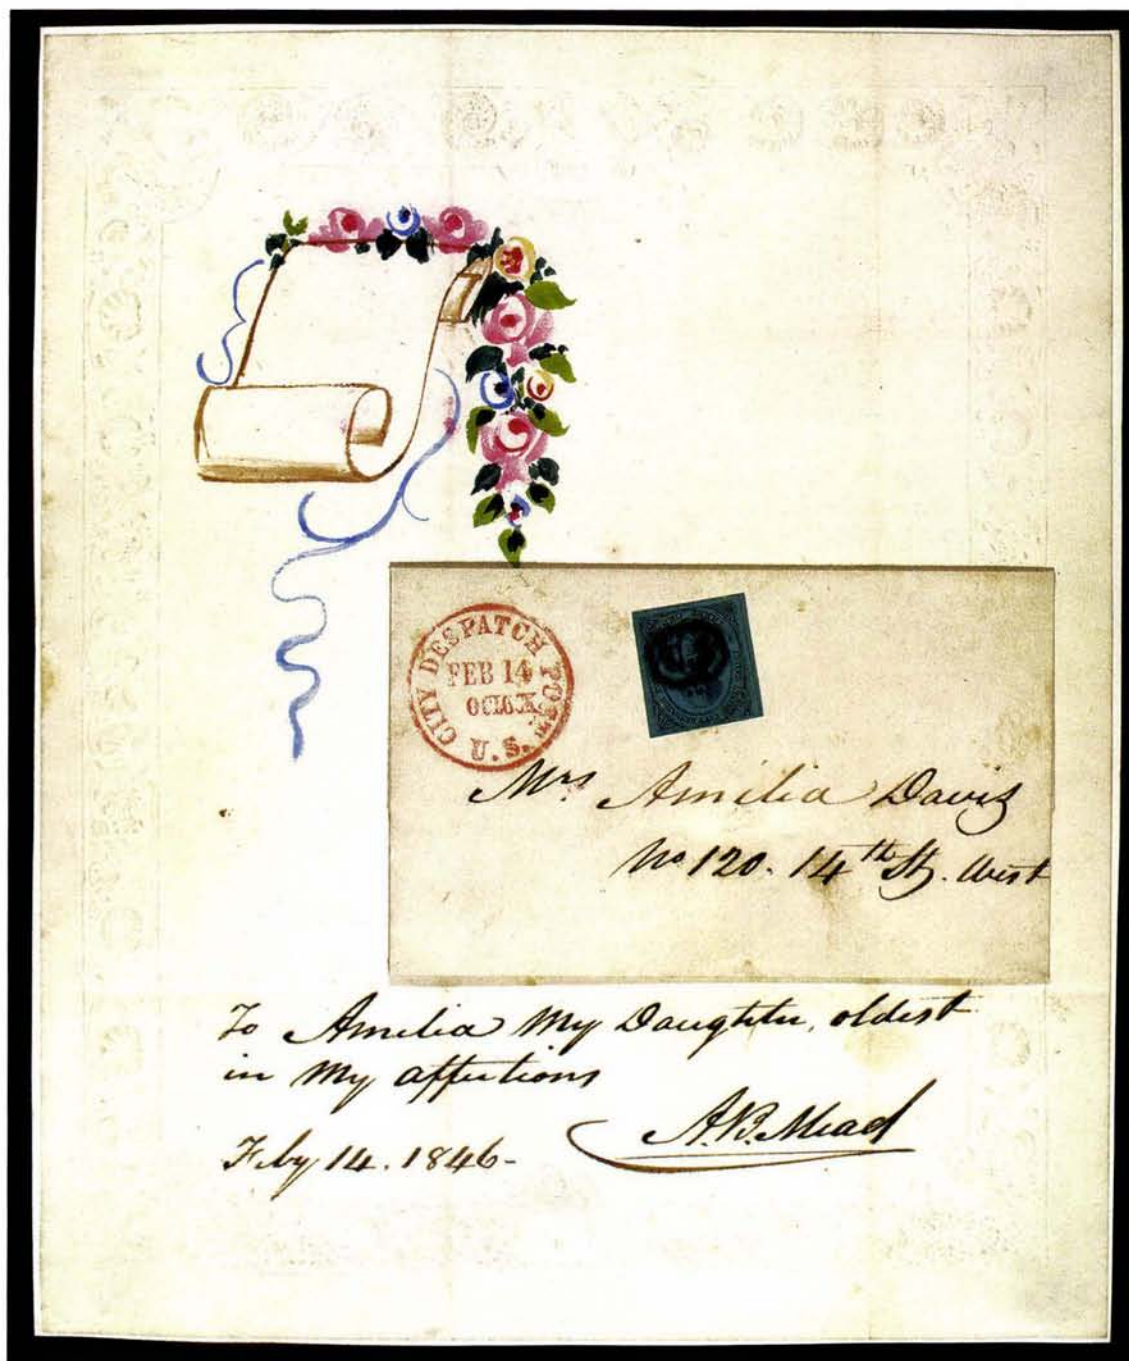 CITY DESPATCH POST
FEB 14
U.S.
Mrs Amilia Davis
No 120. 14th St. West
To Amelia My Daughter, oldest
in My affections
A.B. Mead
Feby 14. 1846-